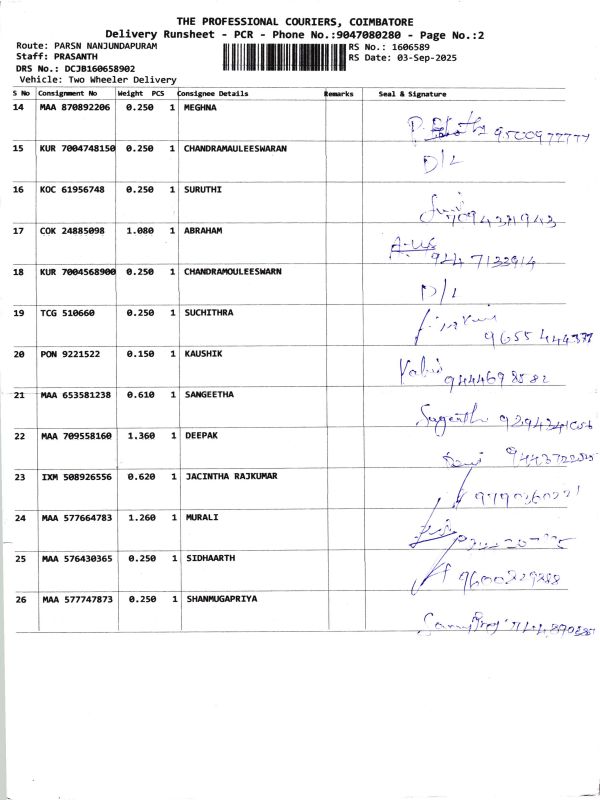 THE PROFESSIONAL COURIERS, COIMBATORE
Delivery Runsheet - PCR - Phone No.:9047080280 - Page No.:2
Route: PARSN NANJUNDAPURAM
RS No.: 1606589
Staff: PRASANTH
RS Date: 03-Sep-2025
DRS No.: DCJB160658902
Vehicle: Two Wheeler Delivery
S No Consignment No Weight PCS Consignee Details Remarks Seal & Signature
14 MAA 870892206 0.250 1 MEGHNA
9500977777
15 KUR 7004748150 0.250 1 CHANDRAMAULEESWARAN
D/L
16 KOC 61956748 0.250 1 SURUTHI
17 COK 24885098 1.080 1 ABRAHAM
9447133914
18 KUR 7004568900 0.250 1 CHANDRAMOULEESWARN
D/L
19 TCG 510660 0.250 1 SUCHITHRA
20 PON 9221522 0.150 1 KAUSHIK
9444698582
21 MAA 653581238 0.610 1 SANGEETHA
22 MAA 709558160 1.360 1 DEEPAK
23 IXM 508926556 0.620 1 JACINTHA RAJKUMAR
24 MAA 577664783 1.260 1 MURALI
25 MAA 576430365 0.250 1 SIDHAARTH
9600229288
26 MAA 577747873 0.250 1 SHANMUGAPRIYA